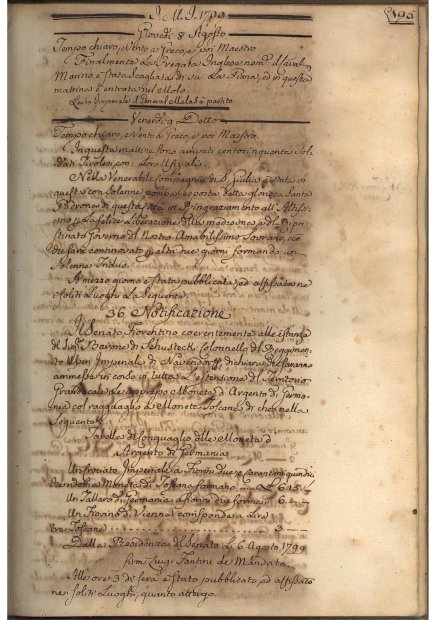 J. M. J. 1799
195
Giovedì 8 Agosto
Tempo chiaro, e Vento a Greco, e poi Maestro.
Finalmente La Fregata Inglese nom.
Marino è stata scagliata di su La Piana, ed in questa
mattina è entrata nel Molo.
il General Melas è partito.
Venerdì 9 Detto
Tempo chiaro, e Vento a Greco, e poi Maestro.
In questa mattina sono arrivati centocinquanta Sol-
dati Tirolesi, con i Loro Ufiziali.
Nella Venerabile Compagnia di S. Giulia è stata in
questo con Solenne pompa esposta della gloriosa Santa
Padrona di questa in Ringraziamento all'Altissi-
mo p. La felice Liberazione della medesima, e del Ripri-
stinato Governo del Nostro Amabilissimo Sovrano, e ciò
dovrà fare continovato p. altri due giorni formando un
Solenne Triduo.
A mezzo giorno è stata pubblicata, ed affissata ne
i soliti Luoghi La Seguente
36 Notificazione
Il Senato Fiorentino coerentemente alle istanze
di Sig. Barone di Schusteck Colonnello del Reggimen-
to Usseri Imperiale di Navendorff, dichiara che saranno
ammesse in corso in tutta L'estensione del
Granducale Le appresso Monete d'Argento di Germa-
nia col ragguaglio Le Monete Toscane di che nella
Seguente
Tabella di Conguaglio delle Monete d
Argento di Germania
Un Crociato Imperiale a Fiorini due e
Moneta di Toscana formano L. 6.15.
Un Tallaro di Germania a fiorini due forma 6.
Un Fiorino di Vienna corrisponde a Lire
tre Toscane 3.
Dalla Presidenza del Senato L. 6 Agosto 1799
firm. Luigi Fantini de Mandato.
Alle ore 3 di sera è stato pubblicato, ed affissato
ne soliti Luoghi, quanto appresso.